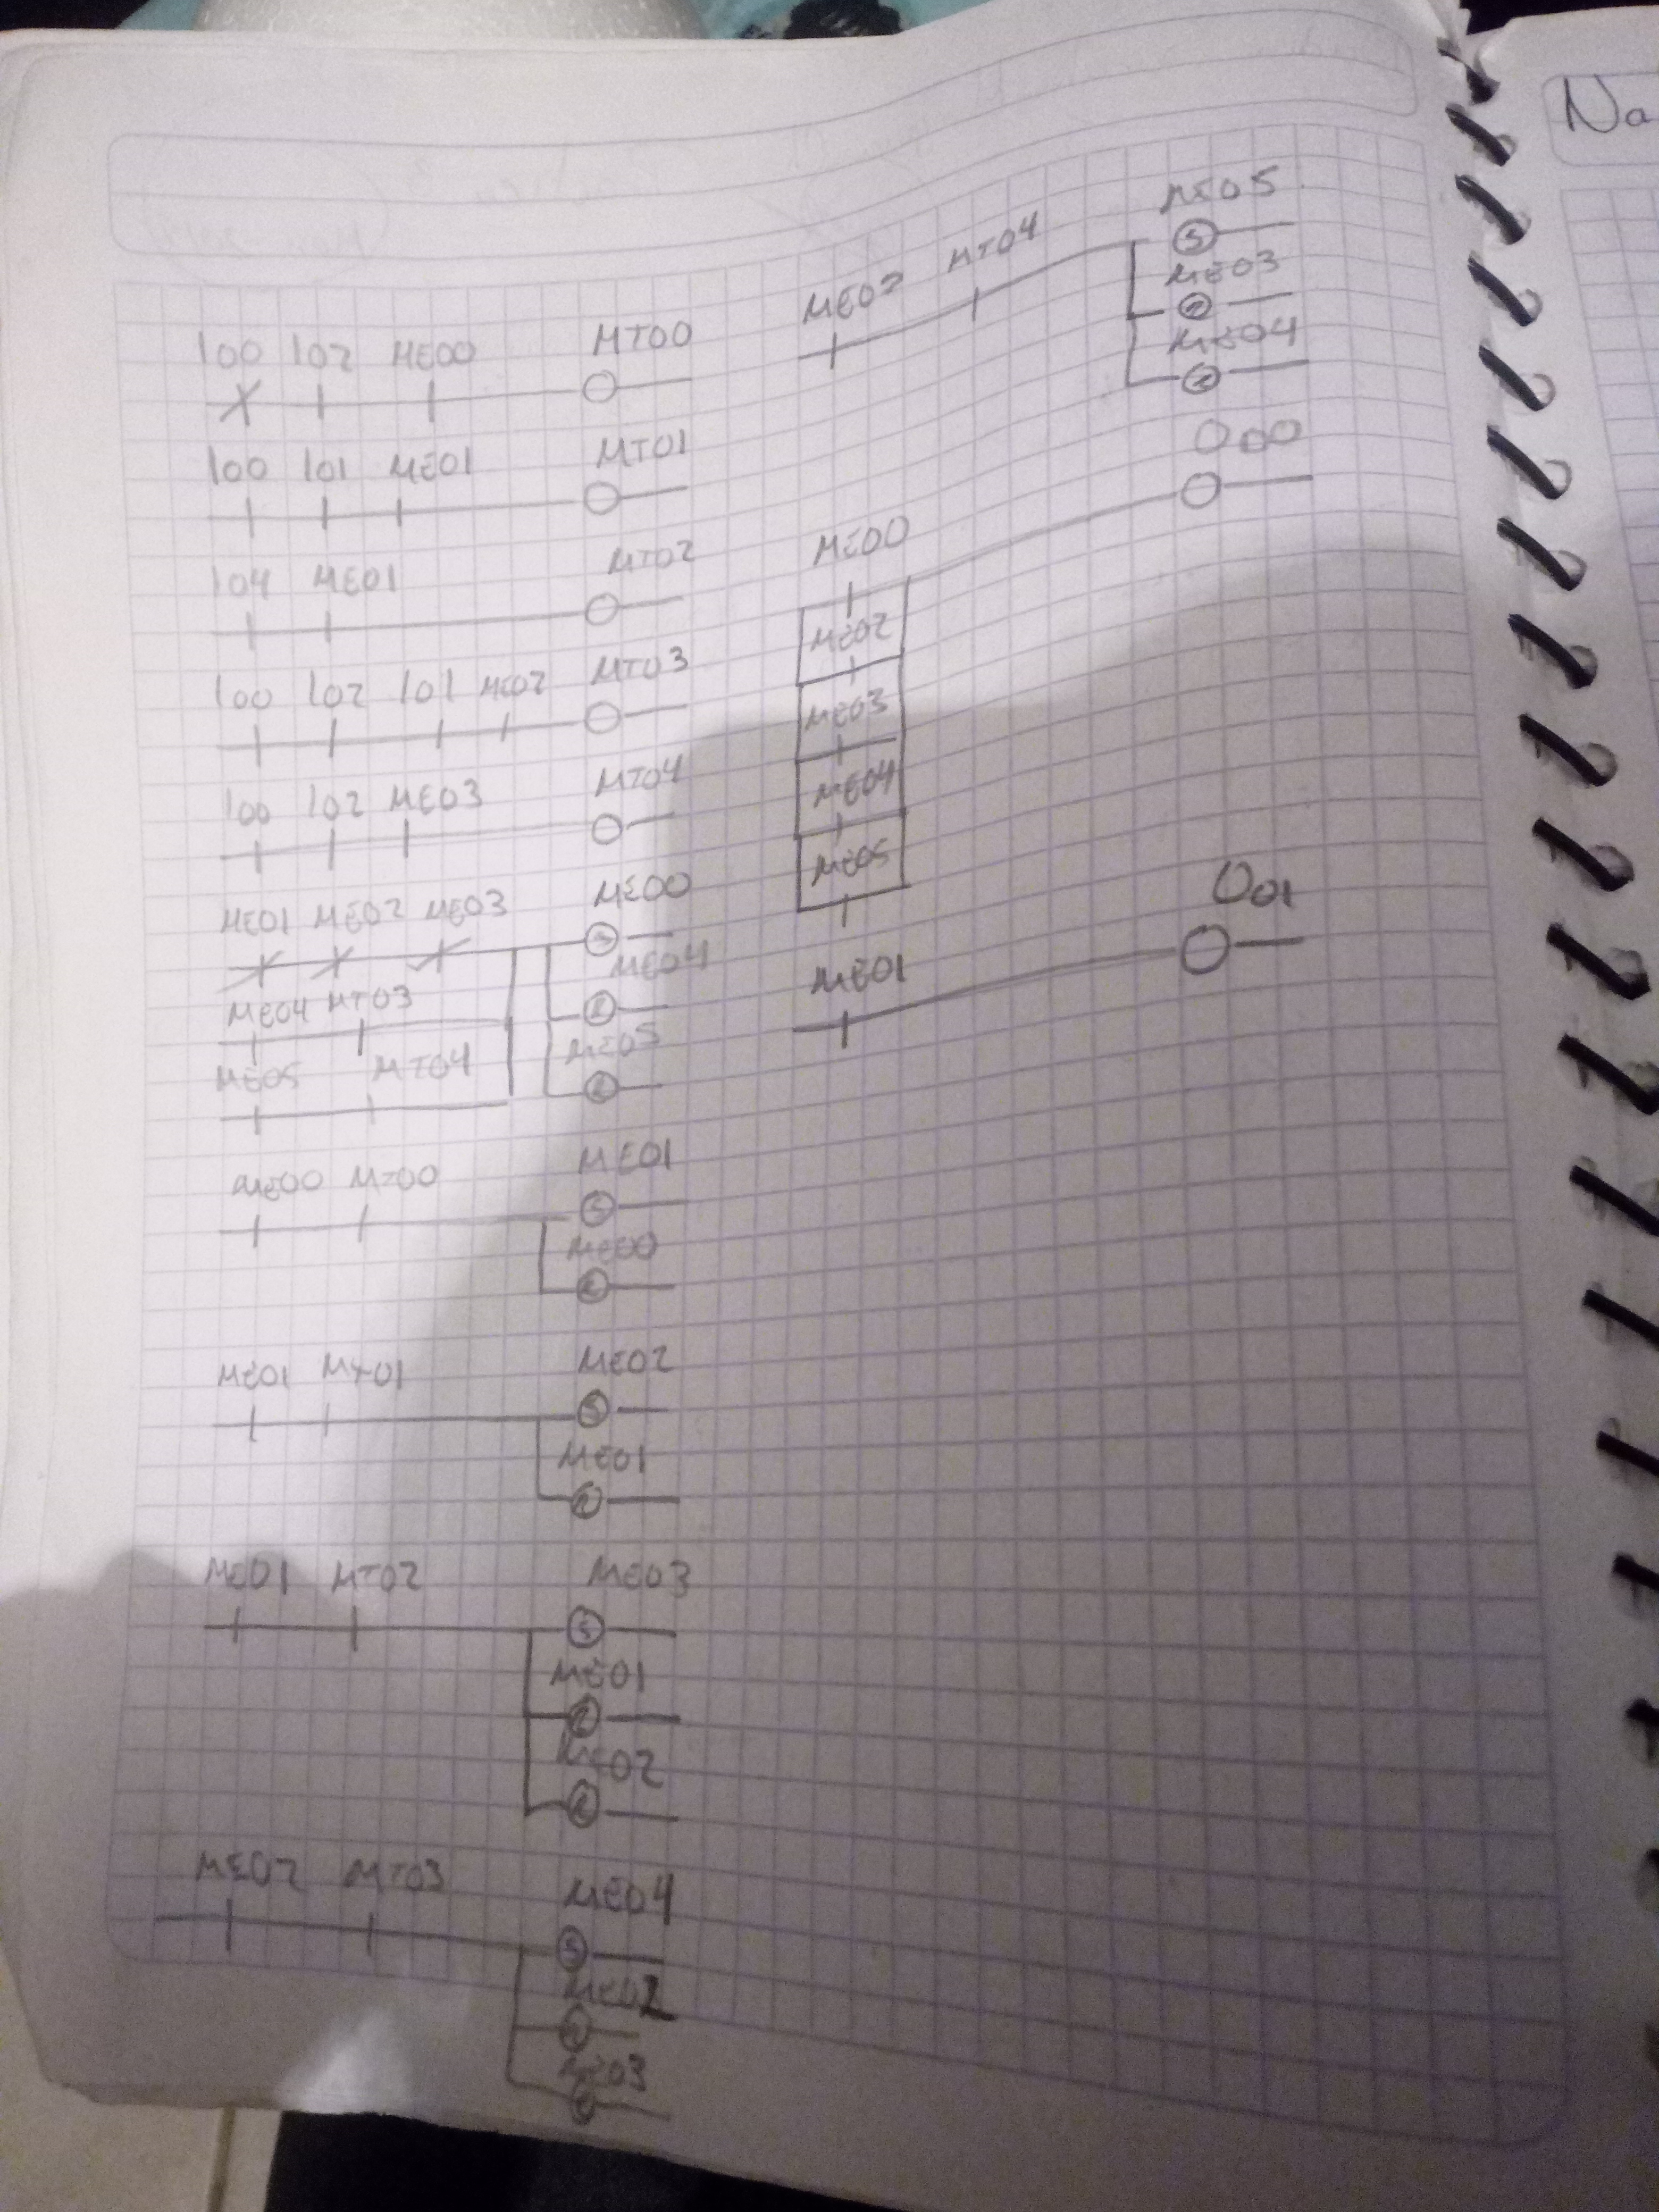 100 102 ME00 MT00
100 101 ME01 MT01
104 ME01 MT02
100 102 101 ME02 MT03
100 102 ME03 MT04
ME01 ME02 ME03 ME00
S
ME04 MT03 ME04
R
ME05 MT04 ME05
R
ME00 MT00 ME01
S
ME00
R
ME01 MT01 ME02
S
ME01
R
ME01 MT02 ME03
S
ME01
R
ME02
R
ME02 MT03 ME04
S
ME02
R
ME03
R
ME02 MT04 ME05
S
ME03
R
ME04
R
O00
ME00
ME02
ME03
ME04
ME05
O01
ME01
Na